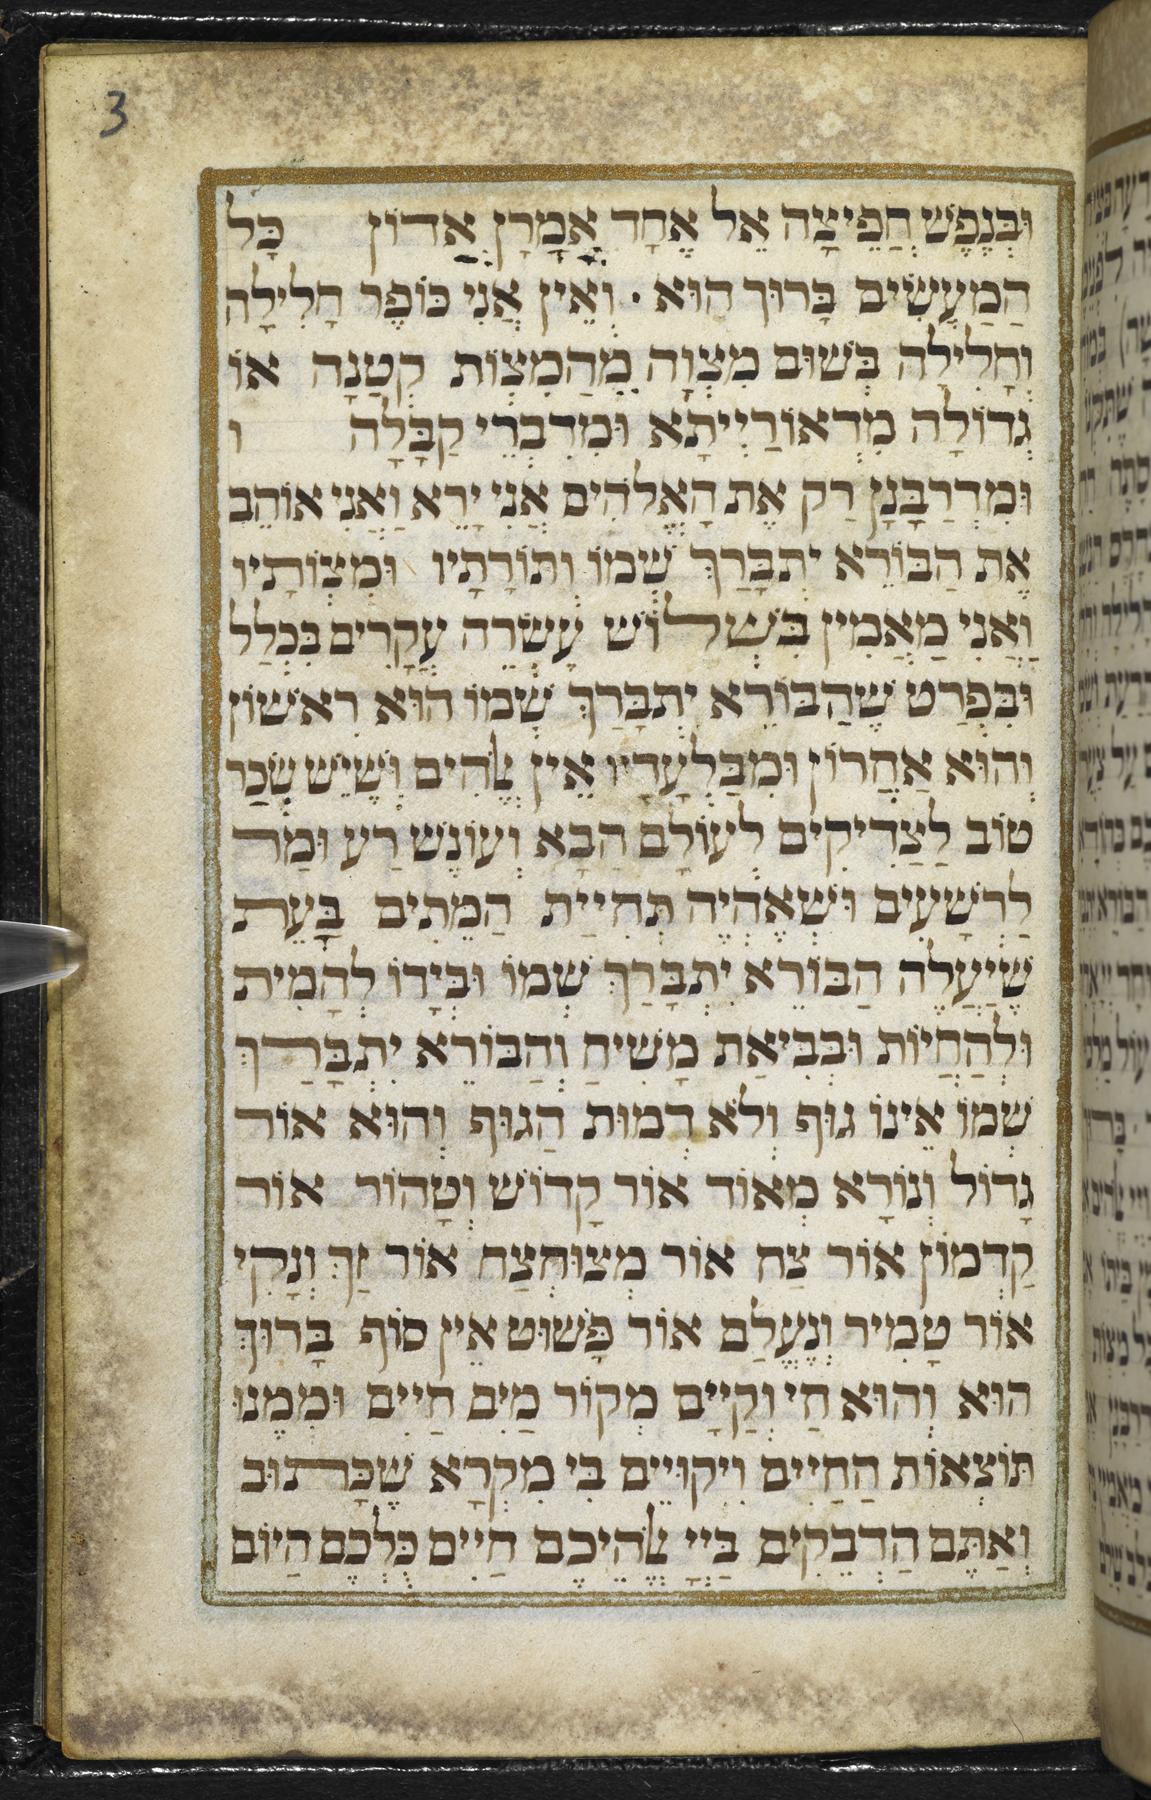 3
וּבְּנֶפֶשׁ חֲפֵיצָה אֵל אֶחָד אֲמָרָן אֲדוֹן כָּל
הַמַעֲשִׂים בָּרוּךְ הוּא · וְאֵין אֲנִי כּוֹפֶר חָלִילָה
וְחָלִילָה בְּשׁוּם מִצְוָה מֵהַמִצְוֹת קְטַנָה אוֹ
גְדוֹלָה מִדְאוֹרַיְיתָא וּמִדִבְרֵי קַבָּלָה ו
וּמִדְרַבָּנָן רַק אֶת הָאֱלֹהִים אֲנִי יָרֵא וַאֲנִי אוֹהֵב
אֶת הַבּוֹרֵא יִתְבָּרַךְ שְׁמוֹ וְתוֹרָתָיו וּמִצְוֹתָיו
וַאֲנִי מַאֲמִין בִּשְׁלוֹשׁ עָשְׂרֵה עֲקָרִים בִּכְלַל
וּבִּפְרַט שֶׁהַבּוֹרֵא יִתְבָּרַךְ שְׁמוֹ הוּא רִאשׁוֹן
וְהוּא אַחֲרוֹן וּמִבַּלְעָדָיו אֵין אֱלֹהִים וְּשֶׁיֵשׁ שְׂכַר
טוֹב לַצַדִיקִים לְעוֹלָם הַבָּא וְעוֹנֶשׁ רַע וּמַר
לָרְשָׁעִים וּשֶׁאֶהְיֶה תְּחִיַית הַמֵתִים בָּעֵת
שֶׁיַעֲלֶה הַבּוֹרֵא יִתְבָּרַךְ שְׁמוֹ וּבְּיָדוֹ לְהָמִית
וּלְהַחֲיוֹת וּבִּבִיאַת מָשִׁיחַ וְהַבּוֹרֵא יִתְבָּרַךְ
שְׁמוֹ אֵינוֹ גוּף וְלֹא דְמוּת הַגוּף וְהוּא אוֹר
גָדוֹל וְנוֹרָא מְאוֹד אוֹר קָדוֹשׁ וְטָהוֹר אוֹר
קַדְמוֹן אוֹר צַח אוֹר מְצוּחְצַח אוֹר זַךְ וְנָקִי
אוֹר טָמִיר וְנֶעֱלַם אוֹר פָּשׁוּט אֵין סוֹף בָּרוּךְ
הוּא וְהוּא חַי וְקַיָים מְקוֹר מַיִם חַיִים וּמִמֶנוּ
תּוֹצְאוֹת הַחַיִים וִיקוּיֵים בִּי מִקְרָא שֶׁכָּתוּב
וְאַתֶּם הַדְבֵקִים בַּיְיָ אֱלֹהֵיכֶם חַיִים כֻּלְכֶם הַיוֹם